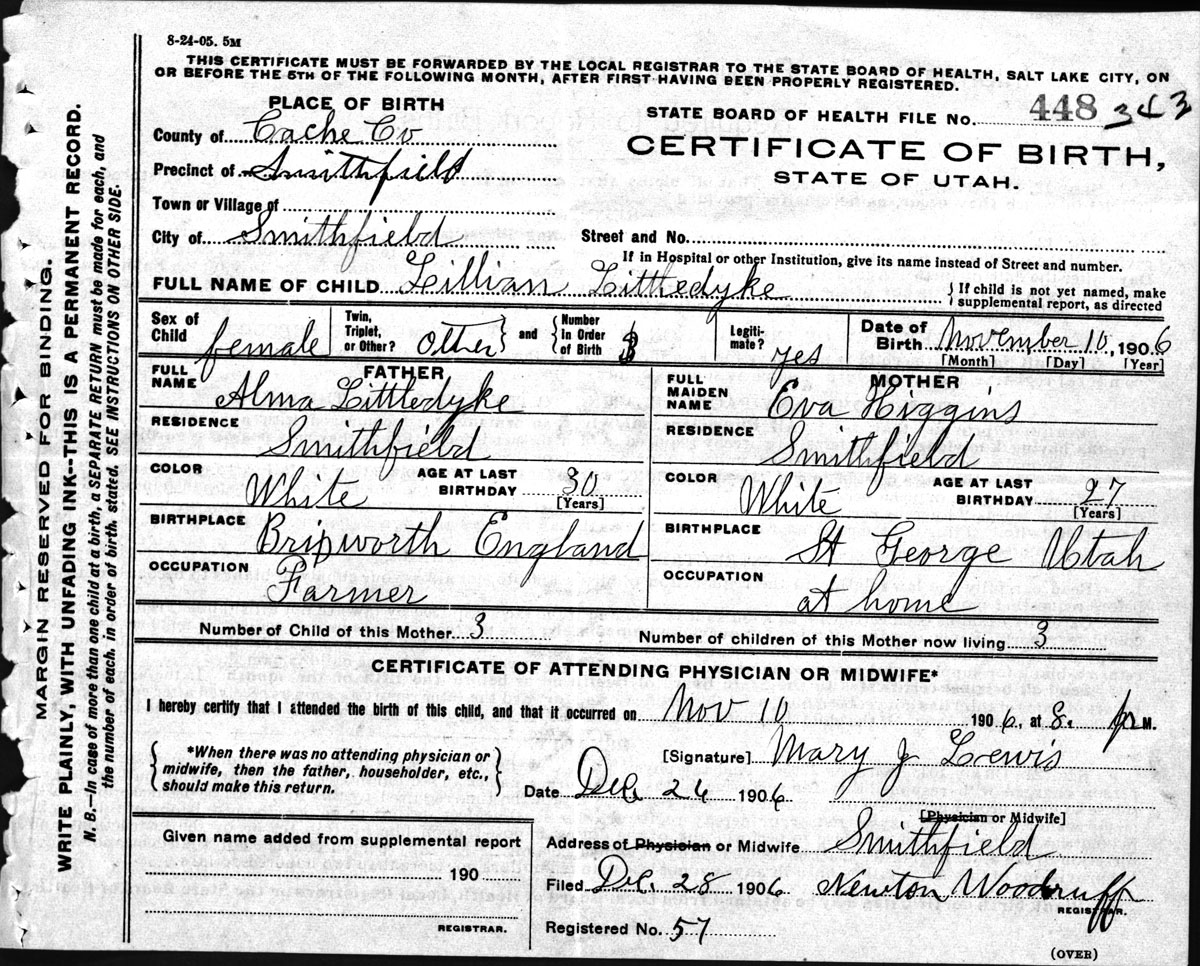 8-24-05. 5M
THIS CERTIFICATE MUST BE FORWARDED BY THE LOCAL REGISTRAR TO THE STATE BOARD OF HEALTH, SALT LAKE CITY, ON
OR BEFORE THE 5TH OF THE FOLLOWING MONTH, AFTER FIRST HAVING BEEN PROPERLY REGISTERED.
MARGIN RESERVED FOR BINDING.
WRITE PLAINLY, WITH UNFADING INK--THIS IS A PERMANENT RECORD.
N. B.—In case of more than one child at a birth, a SEPARATE RETURN must be made for each, and
the number of each, in order of birth, stated. SEE INSTRUCTIONS ON OTHER SIDE.
PLACE OF BIRTH
County of Cache Co
Precinct of Smithfield
Town or Village of
City of Smithfield
STATE BOARD OF HEALTH FILE No. 448 343
CERTIFICATE OF BIRTH,
STATE OF UTAH.
Street and No.
If in Hospital or other Institution, give its name instead of Street and number.
FULL NAME OF CHILD Lillian Littledyke { If child is not yet named, make
supplemental report, as directed
Sex of Child female
Twin, Triplet, or Other? Other } and { Number in Order of Birth
Legiti- mate? yes
Date of Birth November 10, 1906
[Month] [Day] [Year]
FATHER
FULL NAME Alma Littledyke
RESIDENCE Smithfield
COLOR White AGE AT LAST BIRTHDAY 30
[Years]
BIRTHPLACE Bripworth England
OCCUPATION Farmer
MOTHER
FULL MAIDEN NAME Eva Higgins
RESIDENCE Smithfield
COLOR White AGE AT LAST BIRTHDAY 27
[Years]
BIRTHPLACE St George Utah
OCCUPATION at home
Number of Child of this Mother 3 Number of children of this Mother now living 3
CERTIFICATE OF ATTENDING PHYSICIAN OR MIDWIFE*
I hereby certify that I attended the birth of this child, and that it occurred on Nov 10 1906, at 8. P M.
{ *When there was no attending physician or
midwife, then the father, householder, etc.,
should make this return. }
[Signature] Mary J Lewis
Date Dec. 26 1906
[Physician or Midwife]
Address of Physician or Midwife Smithfield
Filed Dec. 28 1906 Newton Woodruff
REGISTRAR.
Registered No. 57
Given name added from supplemental report
190
REGISTRAR.
(OVER)